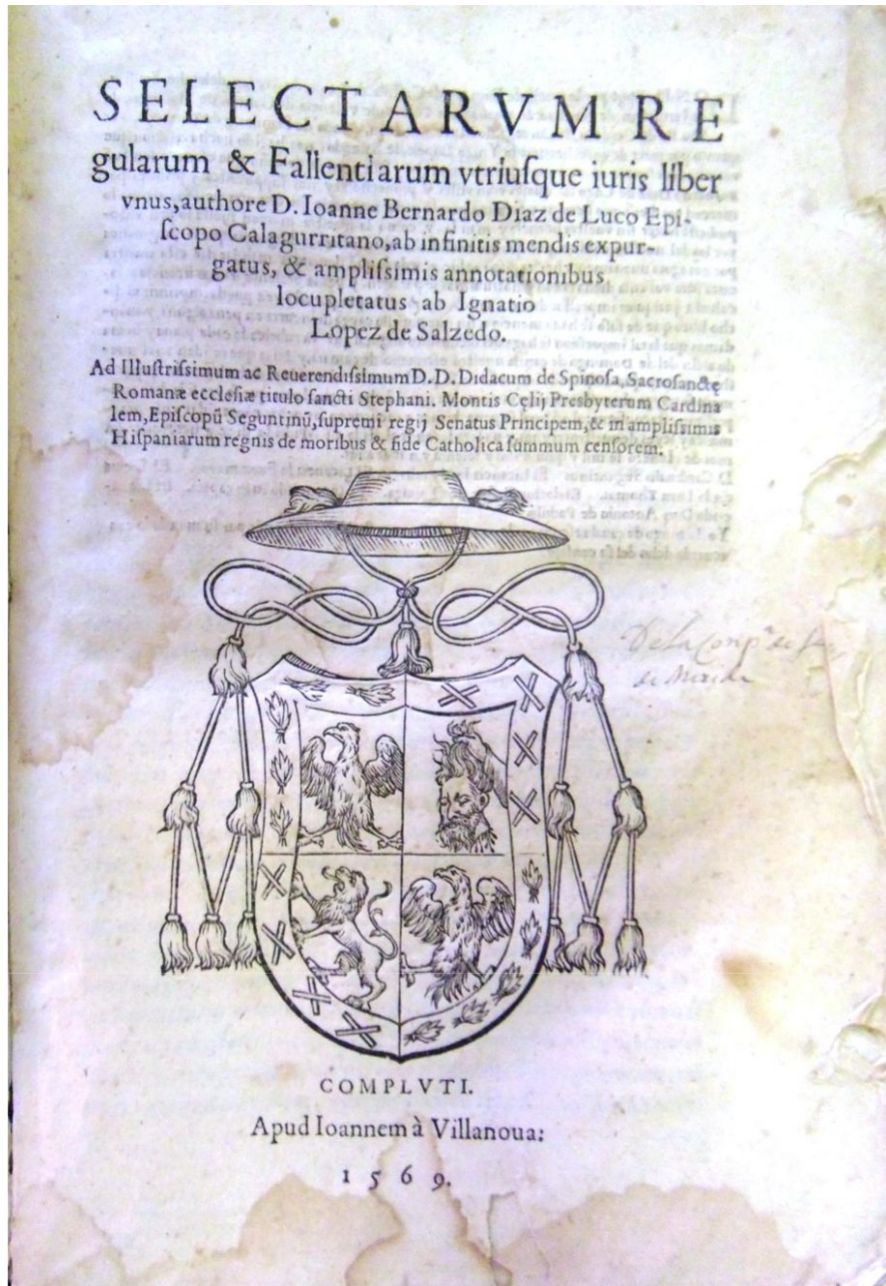 SELECTARVM RE
gularum & Fallentiarum vtriuſque iuris liber
vnus,authore D. Ioanne Bernardo Diaz de Luco Epi-
ſcopo Calagurritano,ab infinitis mendis expur-
gatus, & ampliſsimis annotationibus
locupletatus ab Ignatio
Lopez de Salzedo.
Ad Illuſtriſsimum ac Reuerendiſsimum D.D. Didacum de Spinoſa, Sacroſanctę
Romanæ eccleſiæ titulo ſancti Stephani. Montis Cęlij Presbyterum Cardina
lem, Epiſcopũ Seguntinũ, ſupremi regij Senatus Principem, & in ampliſsimis
Hiſpaniarum regnis de moribus & fide Catholica ſummum cenſorem.
De la Compª de
de
COMPLVTI.
Apud Ioannem à Villanoua:
1569.